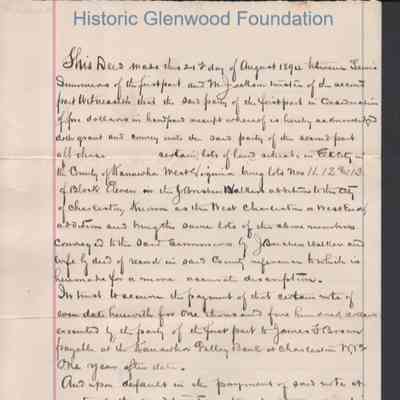 Historic Glenwood Foundation
This Deed made this 21st day of August 1894 between Lewis
Summers of the first part and W. J. trustee of the second
part Witnesseth that the said party of the first part in Consideration
of five dollars in hand paid receipt whereof is hereby acknowledged
doth grant and convey unto the said party of the second part
all those certain lots of land situate in the City in
the County of Kanawha West Virginia being lots Nos 11. 12 and 13.
of Block Eleven in the J Brisben Walkers addition to the City
of Charleston, Known as the West Charleston or West End
addition and being the same lots of the above numbers
conveyed to the said Summers by J Brisben Walker and
wife by deed of record in said County reference to which is
here made for a more accurate description.
In trust to secure the payment of that certain note of
even date herewith for One thousand five hundred dollars
executed by the party of the first part to James F Brown
payable at the Kanawha Valley Bank at Charleston W.Va
One year after date.
And upon default in the payment of said note at